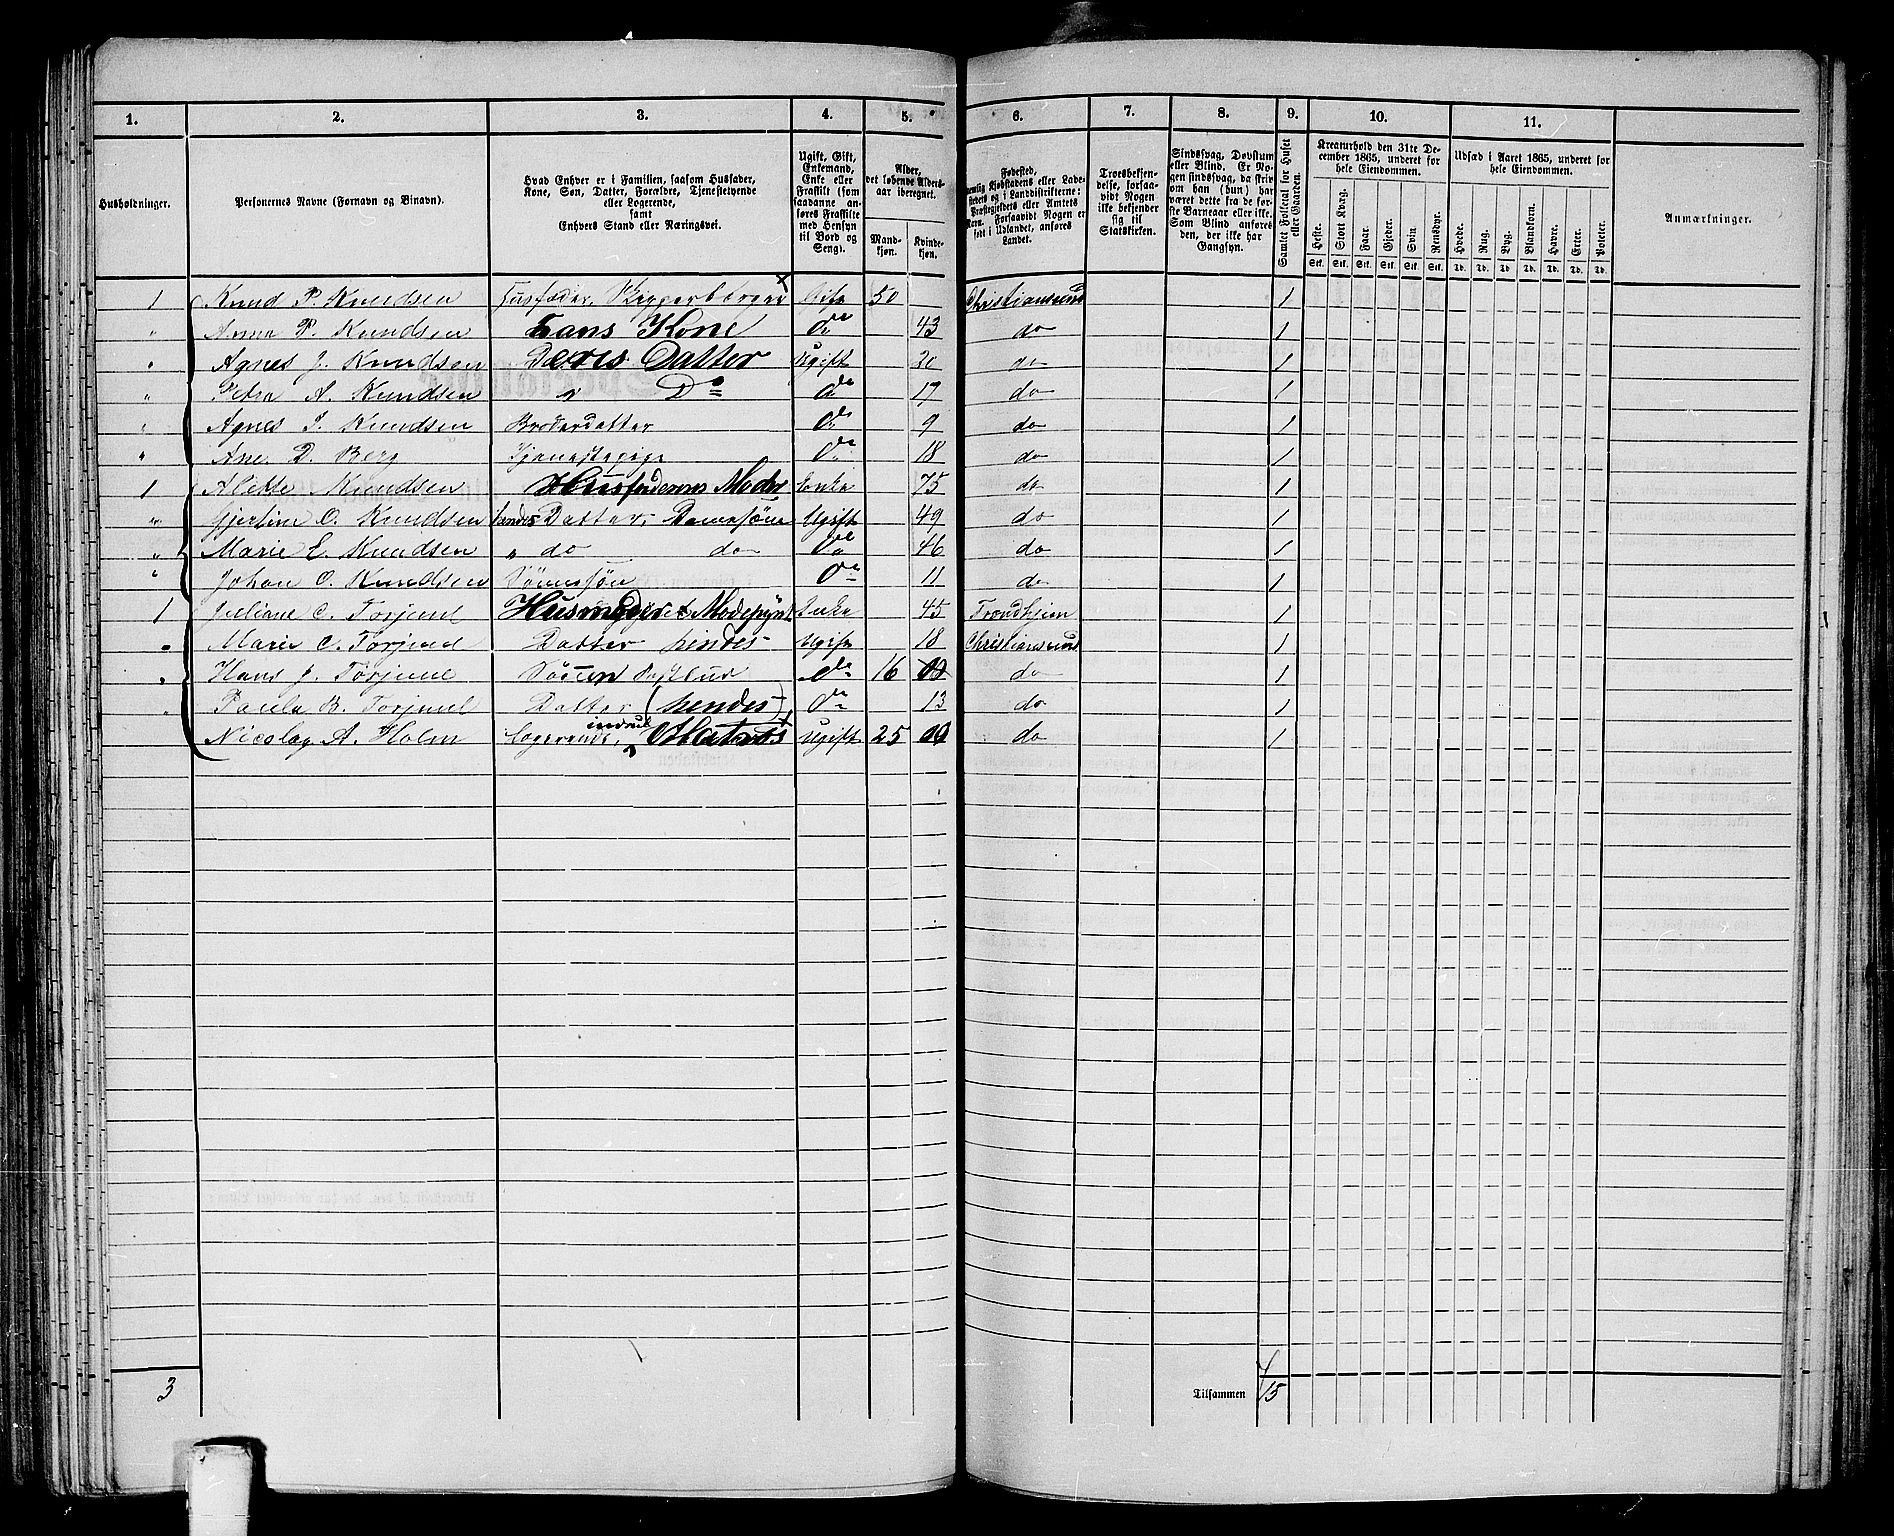 1. 2. 3. 4. 5. 6. 7. 8. 9. 10. 11.
Husholdninger.
Personernes Navne (Fornavn og Binavn).
Hvad Enhver er i Familien, saasom Husfader,
Kone, Søn, Datter, Forældre, Tjenestetyende
eller Logerende,
samt
Enhvers Stand eller Næringsvei.
Ugift, Gift,
Enkemand,
Enke eller
Fraskilt (som
saadanne an-
føres Fraskilte
med Hensyn
til Bord og
Seng).
Alder,
det løbende Alders-
aar iberegnet.
Mand-
kjøn.
Kvinde-
kjøn.
Fødested,
nemlig Kjøbstadens eller Lade-
stedets og i Landdistrikterne:
Præstegjeldets eller Amtets
Navn. Forsaavidt Nogen er
født i Udlandet, anføres
Landet.
Troesbekjen-
delse, forsaa-
vidt Nogen
ikke bekjender
sig til
Statskirken.
Sindssvag, Døvstum
eller Blind. Er No-
gen sindssvag, da skri-
ves om han (hun) har
været dette fra de før-
ste Barneaar eller ikke.
Som Blind anføres
den, der ikke har
Gangsyn.
Samlet Folketal for Huset
eller Gaarden.
Kreaturhold den 31te De-
cember 1865, underet for
hele Eiendommen.
Heste. Stort Kvæg. Faar. Gjeder. Svin. Rensdyr.
Stk. Stk. Stk. Stk. Stk. Stk.
Udsæd i Aaret 1865, underet for
hele Eiendommen.
Hvede. Rug. Byg. Blandkorn. Havre. Erter. Poteter.
Td. Td. Td. Td. Td. Td. Td.
Anmærkninger.
1 Knud P. Knudsen Husfader, Riggerborger Gift 50 Christianssund 1
" Anna P. Knudsen Hans Kone do 43 do 1
" Agnes J. Knudsen Deres Datter Ugift 20 do 1
" Petra A. Knudsen " Do do 17 do 1
" Agnes J. Knudsen Broderdatter do 9 do 1
" Ane D. Berg Tjenestepige do 18 do 1
1 Alette Knudsen Husfaderens Moder Enke 75 do 1
" Gjertine O. Knudsen hendes Datter, Damesøm Ugift 49 do 1
" Marie E. Knudsen " do do do 46 do 1
" Johan O. Knudsen Sønnesøn do 11 do 1
1 Juliane C. Torjuul Enke 45 Trondhjem 1
" Marie C. Torjuul Datter hendes Ugift 18 Christianssund 1
" Hans J. Torjuul do 16 do 1
" Paula B. Torjuul Datter (hendes) do 13 do 1
Nicolay A. Holm Logerende, Matros Ugift 25 do 1
3
Tilsammen 15